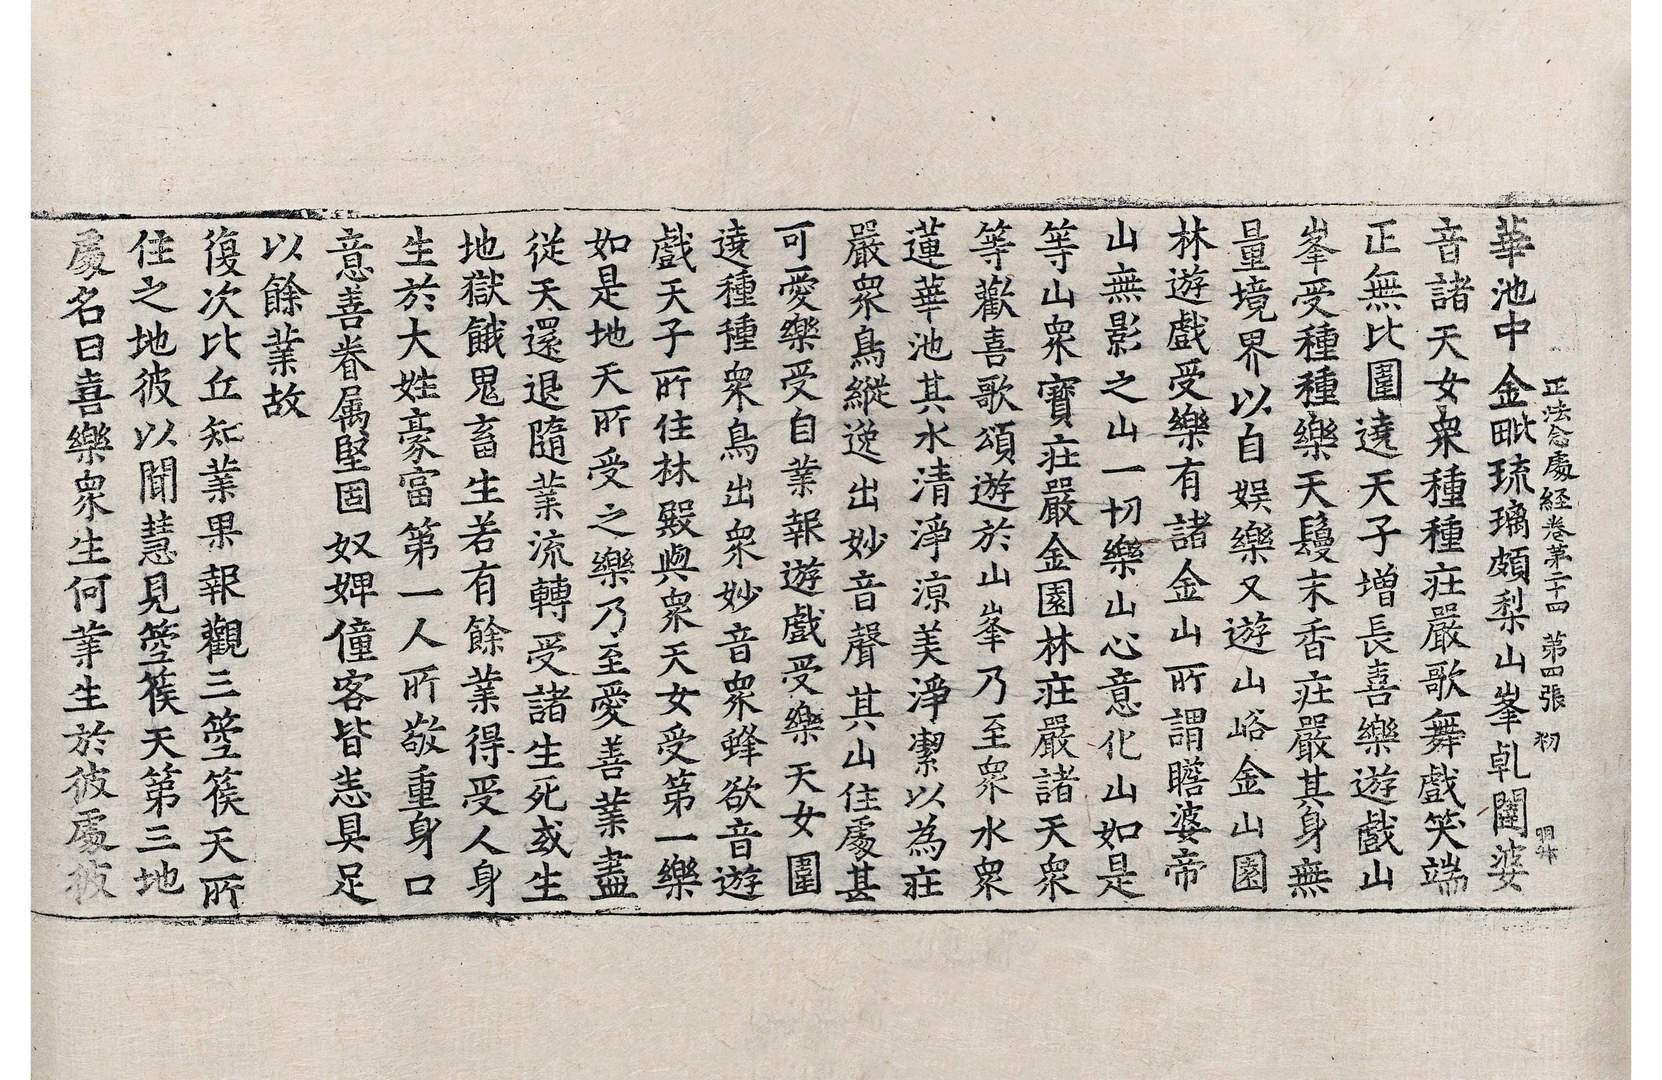 正法念處經卷第二十四 第四張 初
華池中金毗琉璃頗梨山峯乹闥婆
音諸天女衆種種莊嚴歌舞戲笑端
正無比圍遶天子增長喜樂遊戲山
峯受種種樂天鬘末香莊嚴其身無
量境界以自娛樂又遊山峪金山園
林遊戲受樂有諸金山所謂瞻婆帝
山無影之山一切樂山心意化山如是
等山衆寶莊嚴金園林莊嚴諸天衆
等歡喜歌頌遊於山峯乃至衆水衆
蓮華池其水清淨涼美淨潔以為莊
嚴衆鳥縱逸出妙音聲其山住處甚
可愛樂受自業報遊戲受樂天女圍
遶種種衆鳥出衆妙音衆蜂欲音遊
戲天子所住林殿與衆天女受第一樂
如是地天所受之樂乃至愛善業盡
從天還退隨業流轉受諸生死或生
地獄餓鬼畜生若有餘業得受人身
生於大姓豪富第一人所敬重身口
意善眷属堅固奴婢僮客皆悉具足
以餘業故
復次比丘知業果報觀三箜篌天所
住之地彼以聞慧見箜篌天第三地
處名曰喜樂衆生何業生於彼處彼